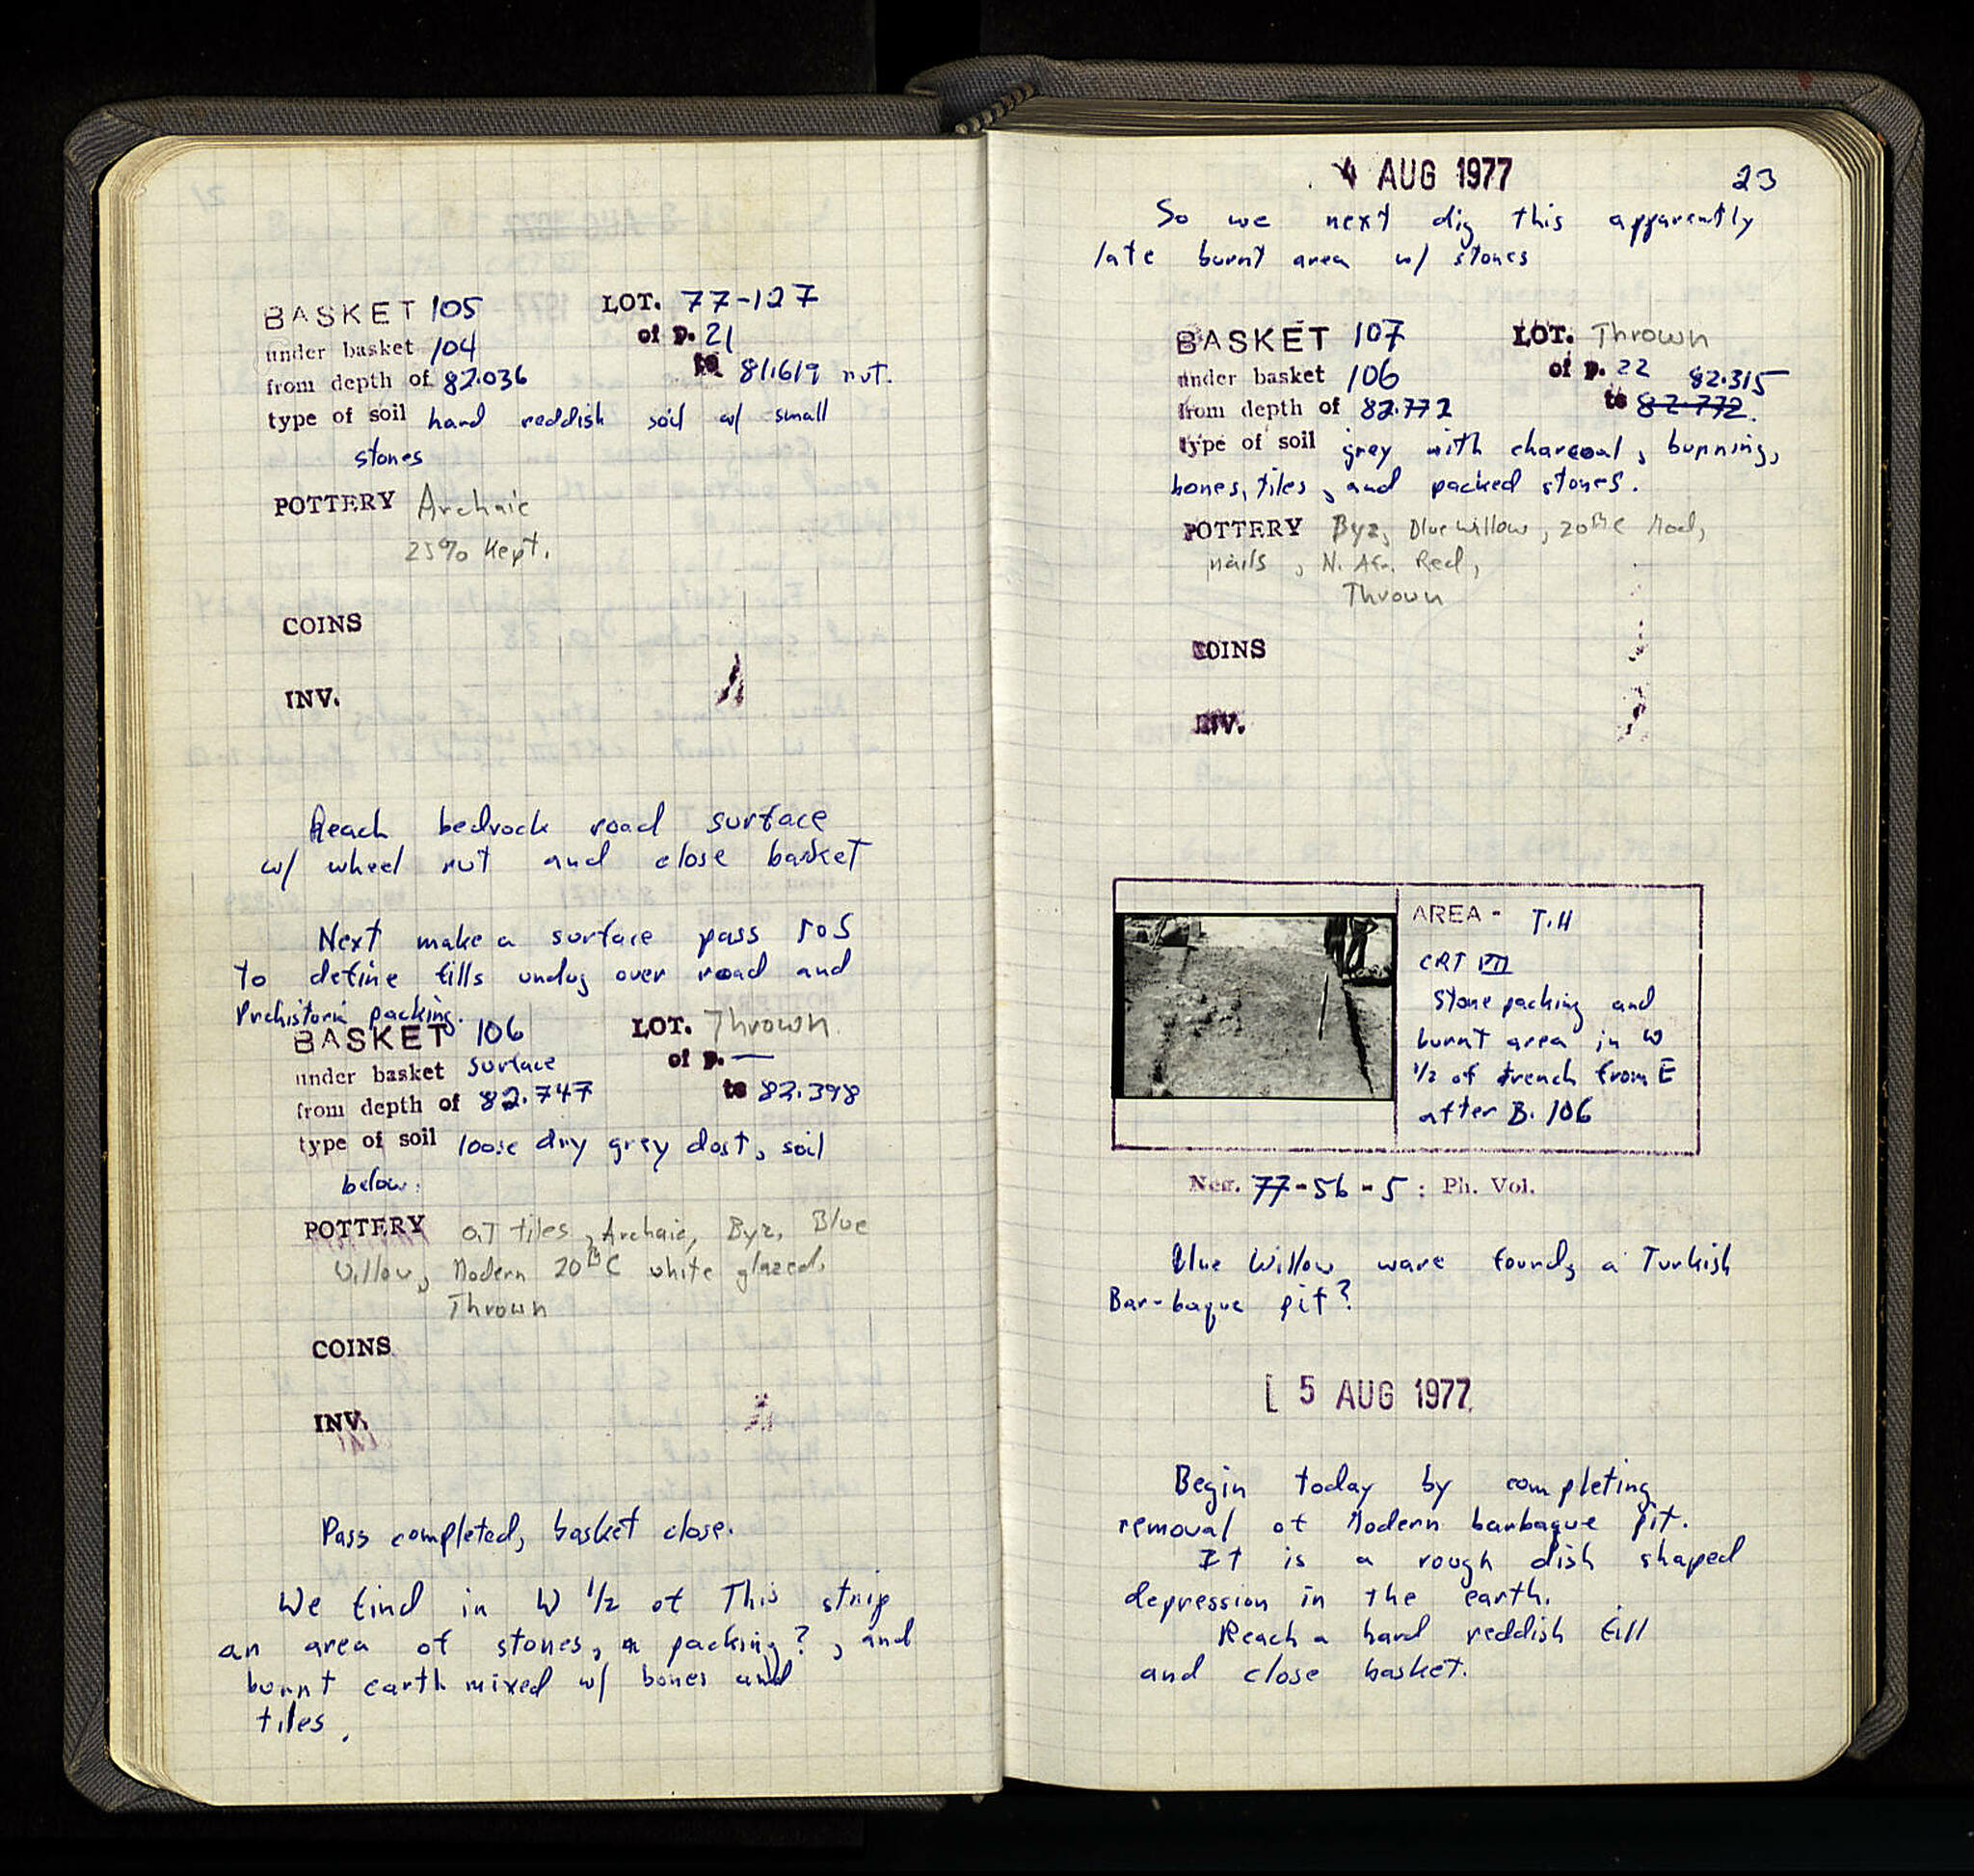 BASKET 105 LOT. 77-127
under basket 104 of p. 21
from depth of 82.036 to 81.619 rut.
type of soil hard reddish soil w/ small
stones
POTTERY Archaic
25% Kept.
COINS
INV.
Reach bedrock road surface
w/ wheel rut and close basket
Next make a surface pass to S
to define fills undug over road and
Prehistoric packing.
BASKET 106 LOT. Thrown
under basket surface of p. —
from depth of 82.747 to 82.398
type of soil loose dry grey dust, soil
below.
POTTERY tiles, Archaic, Byz, Blue
Willow, Modern 20th C white glazed.
Thrown
COINS
INV.
Pass completed, basket close.
We find in W 1/2 of This strip
an area of stones, a packing?, and
burnt earth mixed w/ bones and
tiles.
4 AUG 1977 23
So we next dig this apparently
late burnt area w/ stones
BASKET 107 LOT. Thrown
under basket 106 of p. 22 82.315
from depth of 82.772 to 82.772.
type of soil grey with charcoal, burning,
bones, tiles, and packed stones.
POTTERY Byz, Blue Willow, 20th C Mod,
nails, N. Afr. Red,
Thrown
COINS
INV.
AREA - T.H
CRT VII
Stone packing and
burnt area in W
1/2 of trench from E
after B. 106
Neg. 77-56-5 : Ph. Vol.
Blue Willow ware found, a Turkish
Bar-baque pit?
5 AUG 1977
Begin today by completing
removal of Modern barbaque pit.
It is a rough dish shaped
depression in the earth.
Reach a hard reddish fill
and close basket.